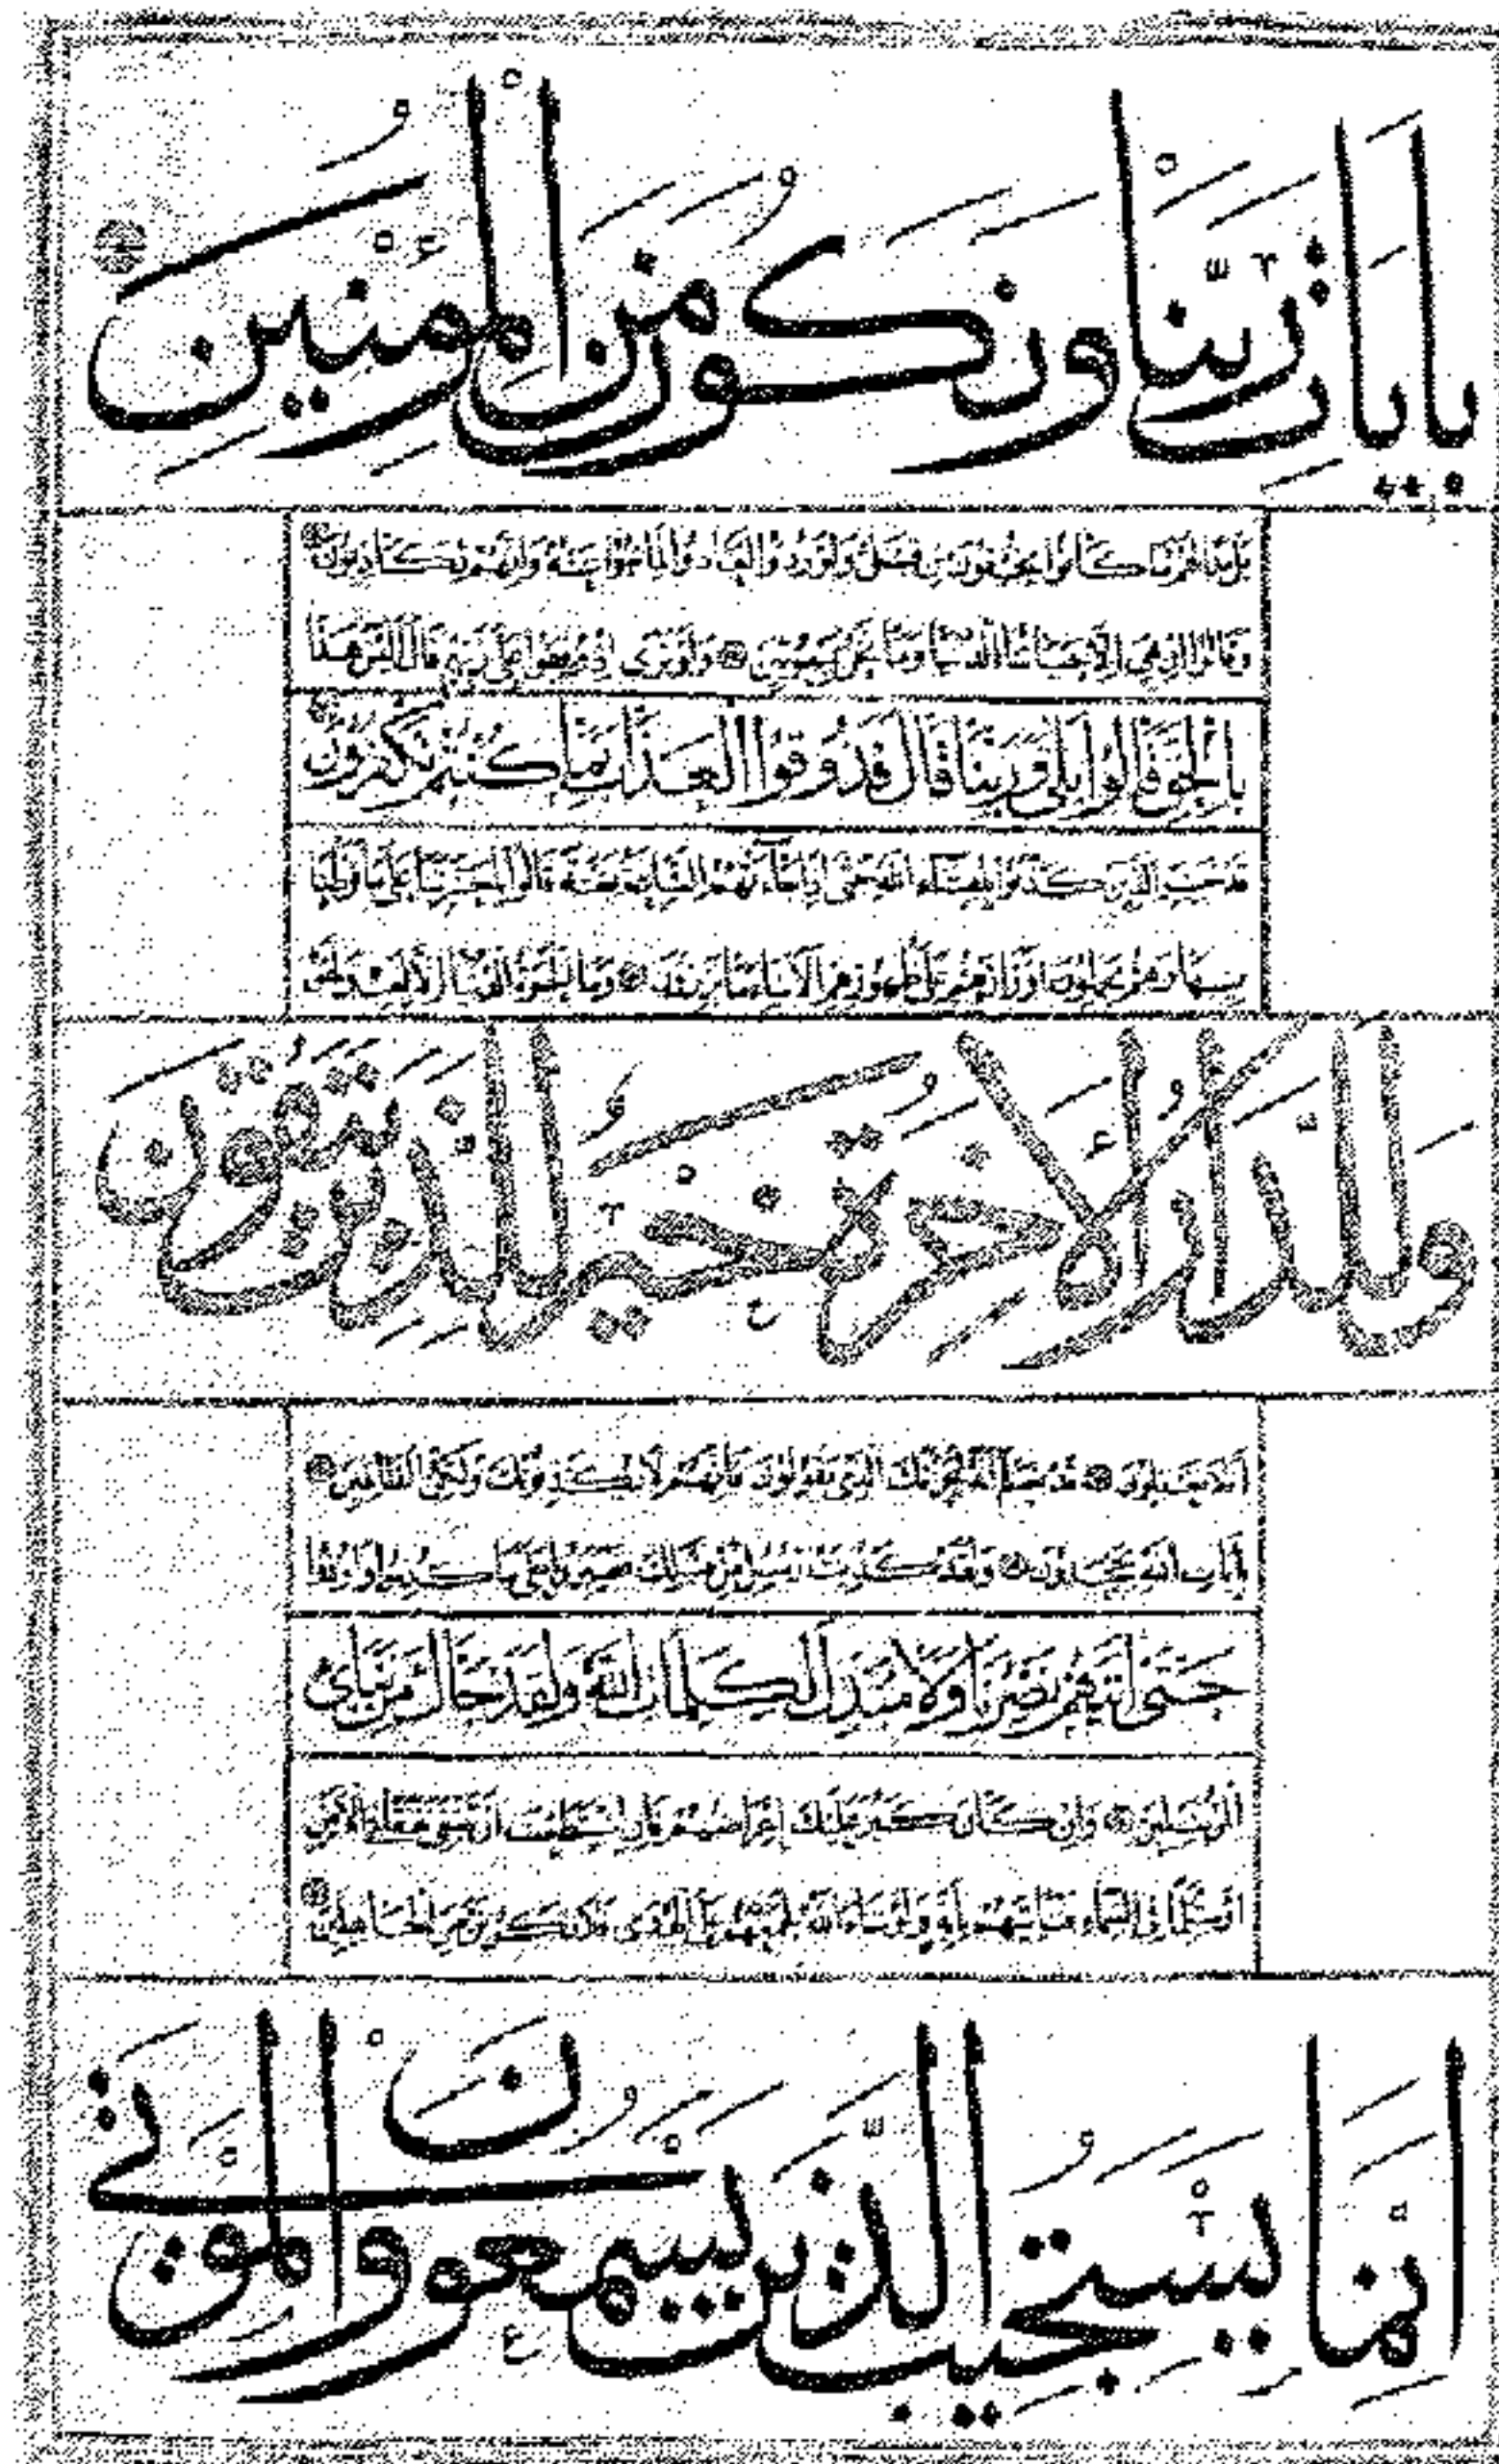 بايات ربنا ونكون من المؤمنين
بل بدا لهم ما كانوا يخفون من قبل ولو ردوا لعادوا لما نهوا عنه وانهم لكاذبون
وقالوا ان هي الا حياتنا الدنيا وما نحن بمبعوثين ولو ترى اذ وقفوا على ربهم قال اليس هذا
بالحق قالوا بلى وربنا قال فذوقوا العذاب بما كنتم تكفرون
قد خسر الذين كذبوا بلقاء الله حتى اذا جاءتهم الساعة بغتة قالوا يا حسرتنا على ما فرطنا
فيها وهم يحملون اوزارهم على ظهورهم الا ساء ما يزرون وما الحيوة الدنيا الا لعب ولهو
وللدار الآخرة خير للذين يتقون
افلا تعقلون قد نعلم انه ليحزنك الذي يقولون فانهم لا يكذبونك ولكن الظالمين
بايات الله يجحدون ولقد كذبت رسل من قبلك فصبروا على ما كذبوا واوذوا
حتى اتيهم نصرنا ولا مبدل لكلمات الله ولقد جاءك من نبائ
المرسلين وان كان كبر عليك اعراضهم فان استطعت ان تبتغي نفقا في الارض
او سلما في السماء فتاتيهم باية ولو شاء الله لجمعهم على الهدى فلا تكونن من الجاهلين
انما يستجيب الذين يسمعون والموتى